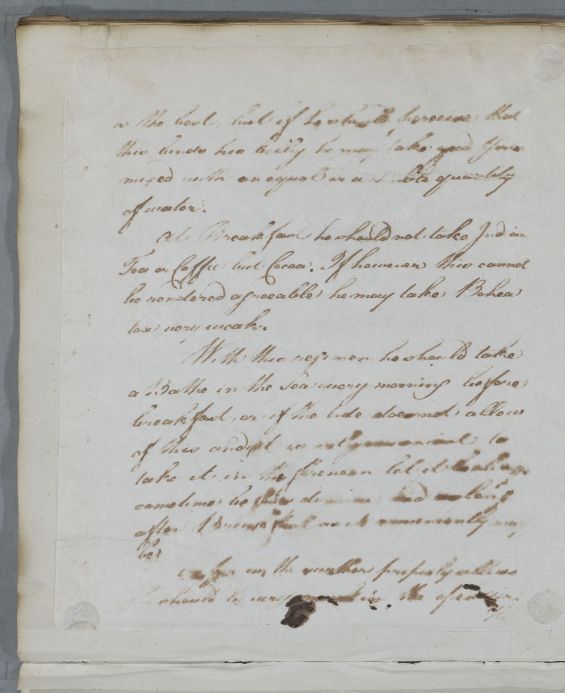 is the best, but if he should perceive that
this binds his belly he may take good
mixed with an equal or a quantity
of water.
At Breakfast he should not take Indian
Tea or Coffee but Cocoa. If however this cannot
be rendered agreeable he may take Bohea
tea very weak.
With this regimen he should take
a Bathe in the Sea every morning before
breakfast or if the tide does not allow
of this and it is not convenient to
take it in the forenoon let it be
sometime before dinner and as long
after Breakfast as it conveniently may
be.
as the weather properly allows
should be in the open air